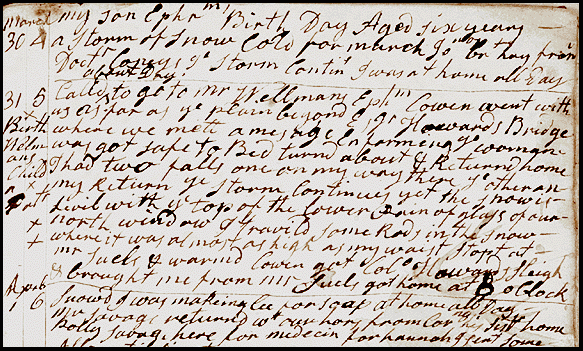 March my son Ephrms Birth Day Aged six years
30 4 a storm of snow Cold for march Jonathn brt hay from
Doctr Coneys ye storm Contin I was at home all Day
about Day
31 5 Calld to go to mr Wellmans Ephm Cowen went with
x us as far as ye plain beyond Esqr Howards Bridge
Birth where we mett a mesage informing ye woman
Welm was got safe to Bed turnd about & Returnd home
ans I had two falls one on my way there ye other on
Child my return ye storm continues yet the snow is
x + levil with ye top of the Lower pain of glass of our
north window I travild some Rods in the snow
x where it was almost as high as my waist stopt at
+ mr Suels & warmd Cowen got Colo Howards Sleigh
& brought me from mr Suels got home at 8 oClock
April Snowd I was making Lee for soap at home all Day
1 6 mr Savage returnd wt our hors from his sist home
Polly Savag here for medecin for hannah I sent some